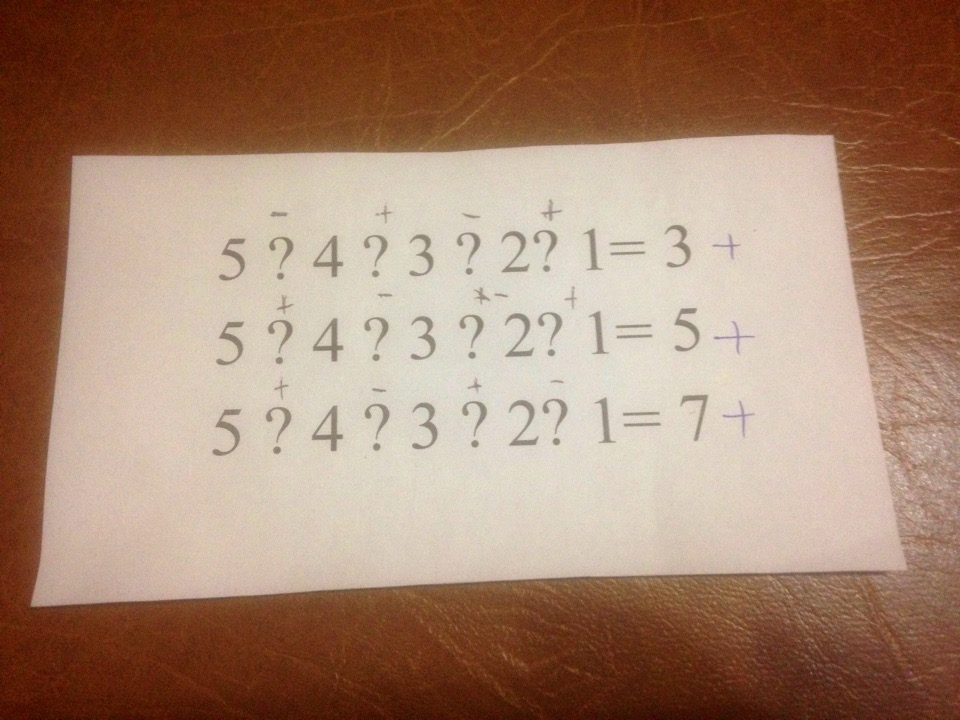 - + - +
5 ? 4 ? 3 ? 2? 1= 3 +
+ - - +
5 ? 4 ? 3 ? 2? 1= 5 +
+ - + -
5 ? 4 ? 3 ? 2? 1= 7 +